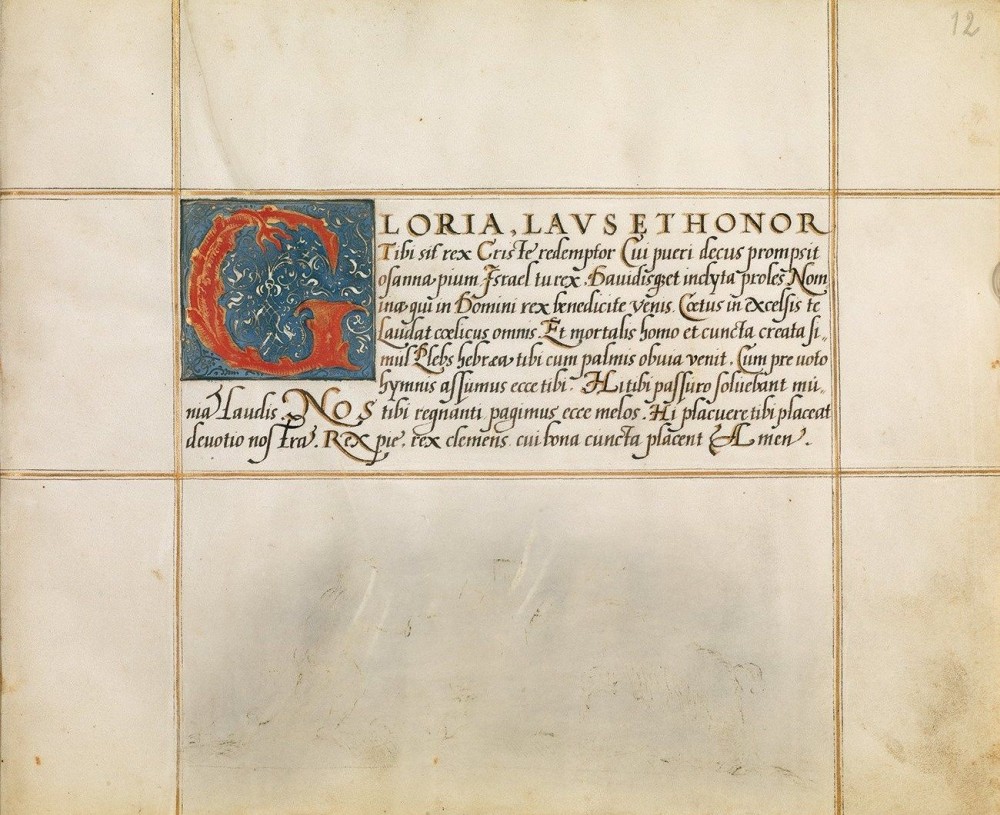 12
GLORIA, LAVS ET HONOR
Tibi sit rex Criste redemptor Cui pueri decus prompsit
osanna pium Israel tu rex, Dauidis et inclyta proles Nom
inæ qui in Domini rex benedicite venis. Cœtus in excelsis te
Laudat cœlicus omnis. Et mortalis homo et cuncta creata si„
mul Plebs hebrea tibi cum palmis obuia venit. Cum pre uoto
hymnis assumus ecce tibi. Hi tibi passuro soluebant mu„
nia laudis. NOS tibi regnanti pagimus ecce melos. Hi placuere tibi placeat
deuotio nostra. Rex pie, rex clemens. cui bona cuncta placent Amen.